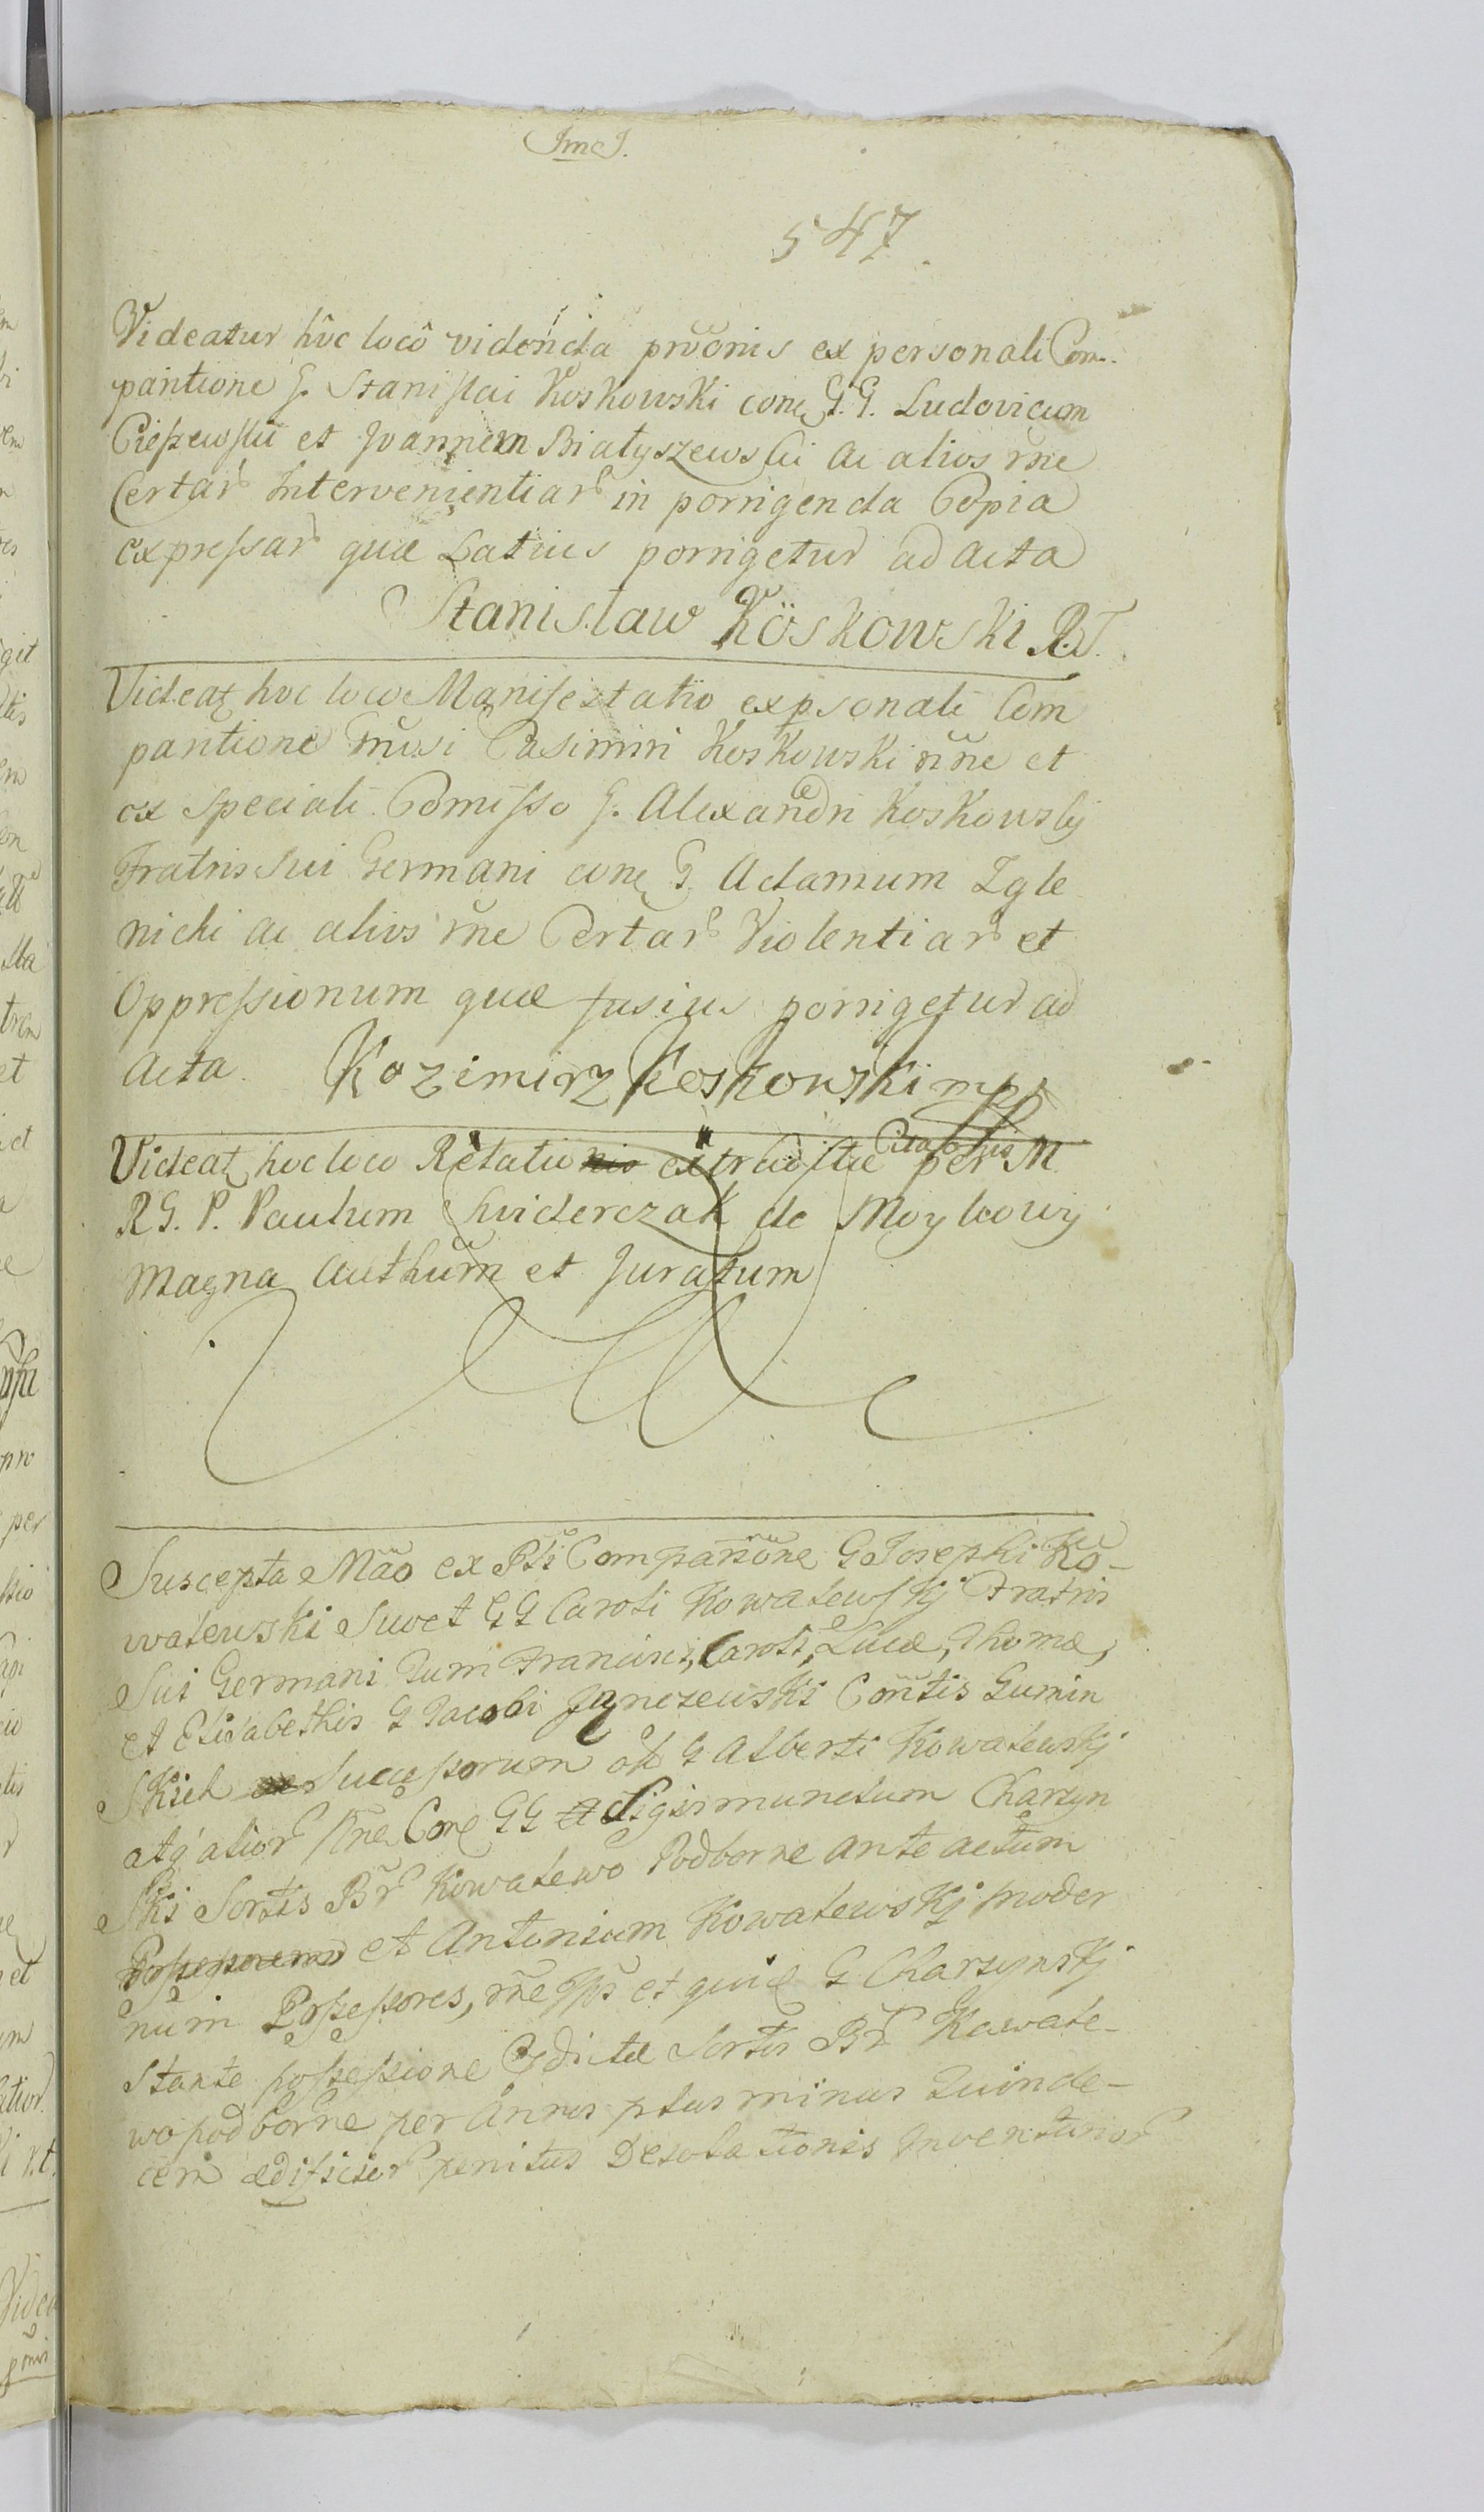 Jmc J.
547.
Videatur hôc locô videnda prvõnis ex personali Com-
pantione G. Stanislai Koskowski conę G. G. Ludovicum
et Joannem Białyszewski ac alios rñe
Certar Intervenientiar in porrigenda Copia
expressar quæ Latius porrigetur ad acta
Stanisław Köskowski R.T.
Videatꝫ hoc loco Manifestatio ex psonali Com
pantione Gñrosi Casimiri Koskowski nñe et
ex speciali Comisso G. Alexandri Koskowsky
Fratris sui Germani conę G Adamum Zgle
nicki ac alios rñe Certar Violentiar et
Oppressionum quæ fusius porrigetur ad
acta. Kazimirz Koskowski mp
Videatꝫ hoc loco Relatio extractæ per M.
RG. P. Paulum Swiderczak de Moykowy
Magna Authum et Juratum
Suscepta Mão ex Psli Comparõne G Josephi Ko-
walewski Suo et GG Caroli Kowalewskj Fratris
Sui Germani Tum Francisci, Caroli, Lucæ, Thomæ,
et Elisabethis G Jacobi Coñtis Gumin
Skich Successorum oli G Alberti Kowalewskj
atq aliorr Rñe Conę GG Sigismundum Charzyn
Ski Sortis Br Kowalewo Podborne ante actum
et Antonium Kowalewskj moder
num Possessores, rñe et quia G Charzynskj
Stante possessione Pdictæ Sortis Br Kowale-
wo podborne per Annos plus minus Quinde-
cem ædificior penitus Desolationis Inventarior